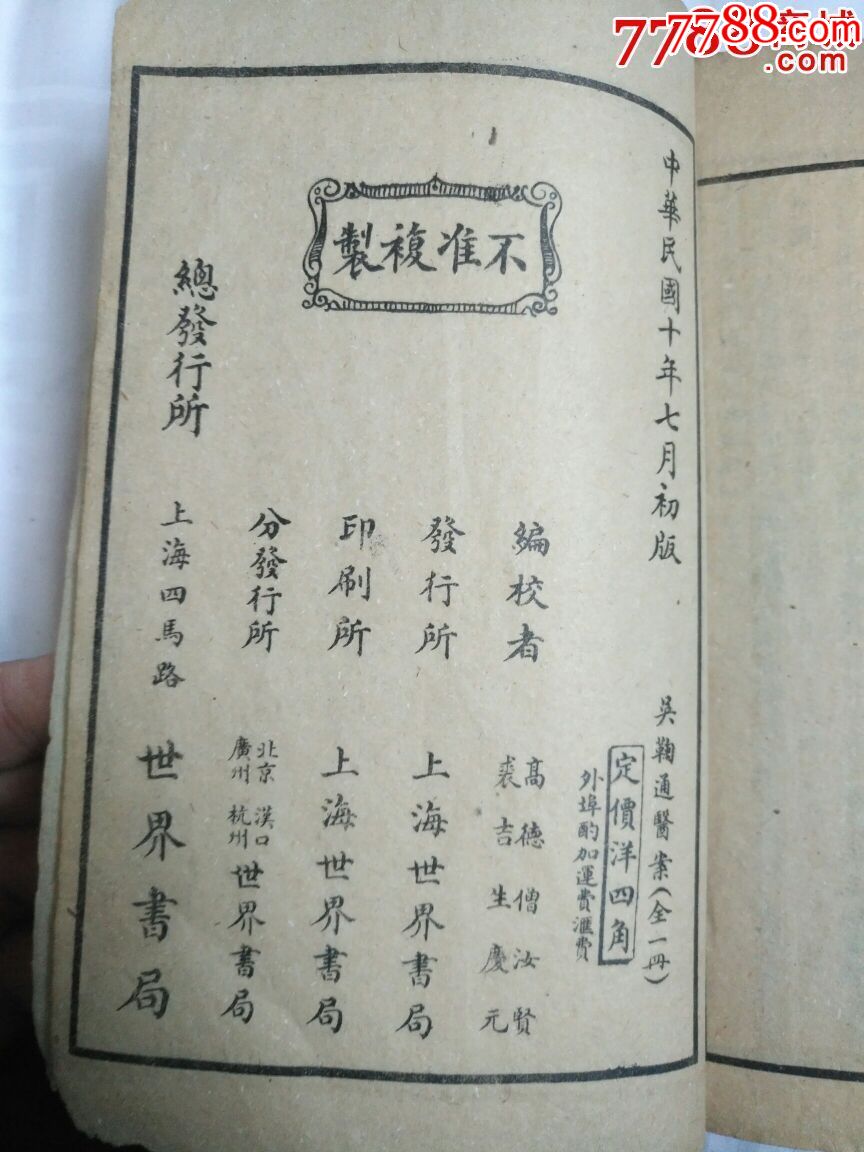 中華民國十年七月初版
吳鞠通醫案(全一冊)
定價洋四角
外埠酌加運費滙費
不准複製
編校者
高德僧汝賢
裘吉生慶元
發行所
上海世界書局
印刷所
上海世界書局
分發行所
北京 漢口
廣州 杭州
世界書局
總發行所
上海四馬路
世界書局
7788.com
.com